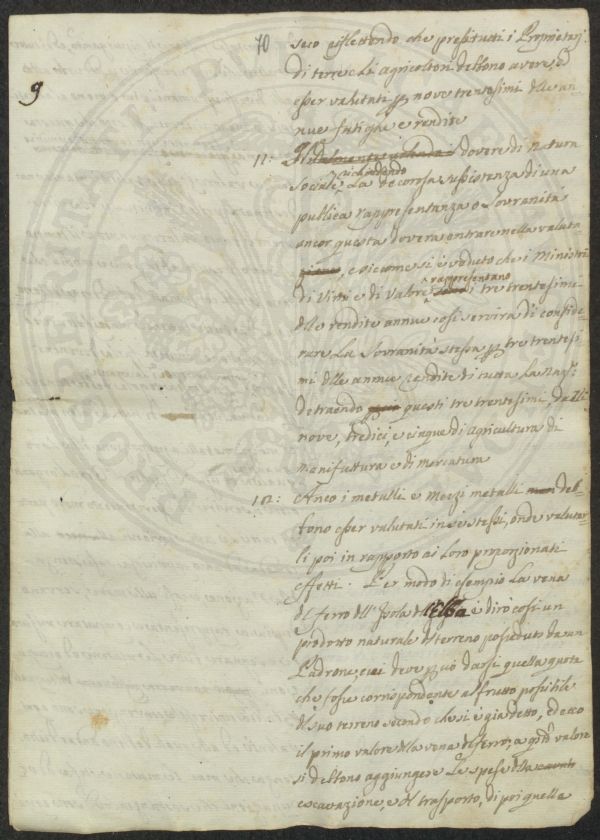 10 seco riflettendo che presi tutti i Proprietarj
9
di terre e li agricoltori debbono avere, ed
esser valutati p nove trentesimi delle an-
nue fatighe e rendite
11: dovere di natura
richiedendo
Sociale, la decorosa sussistenza di una
publica rappresentanza o Sovranità
ancor questa doverà entrare nella valuta-
, e siccome si è veduto che i Ministri
rappresentano
di Vitti e di Valori i tre trentesimi
delle rendite annue così servirà di conside-
rare la Sovranità stessa p tre trentesi-
mi delle annue rendite di tutta la Naz:
detraendo questi tre trentesimi dalli
nove, tredici, e cinque di agricultura di
manifattura e di mercatura
12: Anco i metalli e mezzi metalli deb-
bono esser valutati in se stessi, onde valutar-
li poi in rapporto ai loro proporzionati
effetti. Per modo di esempio la vena
di ferro dell' Isola dell'Elba è dirò così un
prodotto naturale di terreno posseduto da un
Padrone, cui deve p ciò darsi quella quota
che fosse corrispondente al frutto possibile
di suo terreno secondo che si è già detto, ed ecco
il primo valore della vena di ferro, a questo valore
si debbono aggiungere le spese della cavato
escavazione, e del trasporto, di poi quella